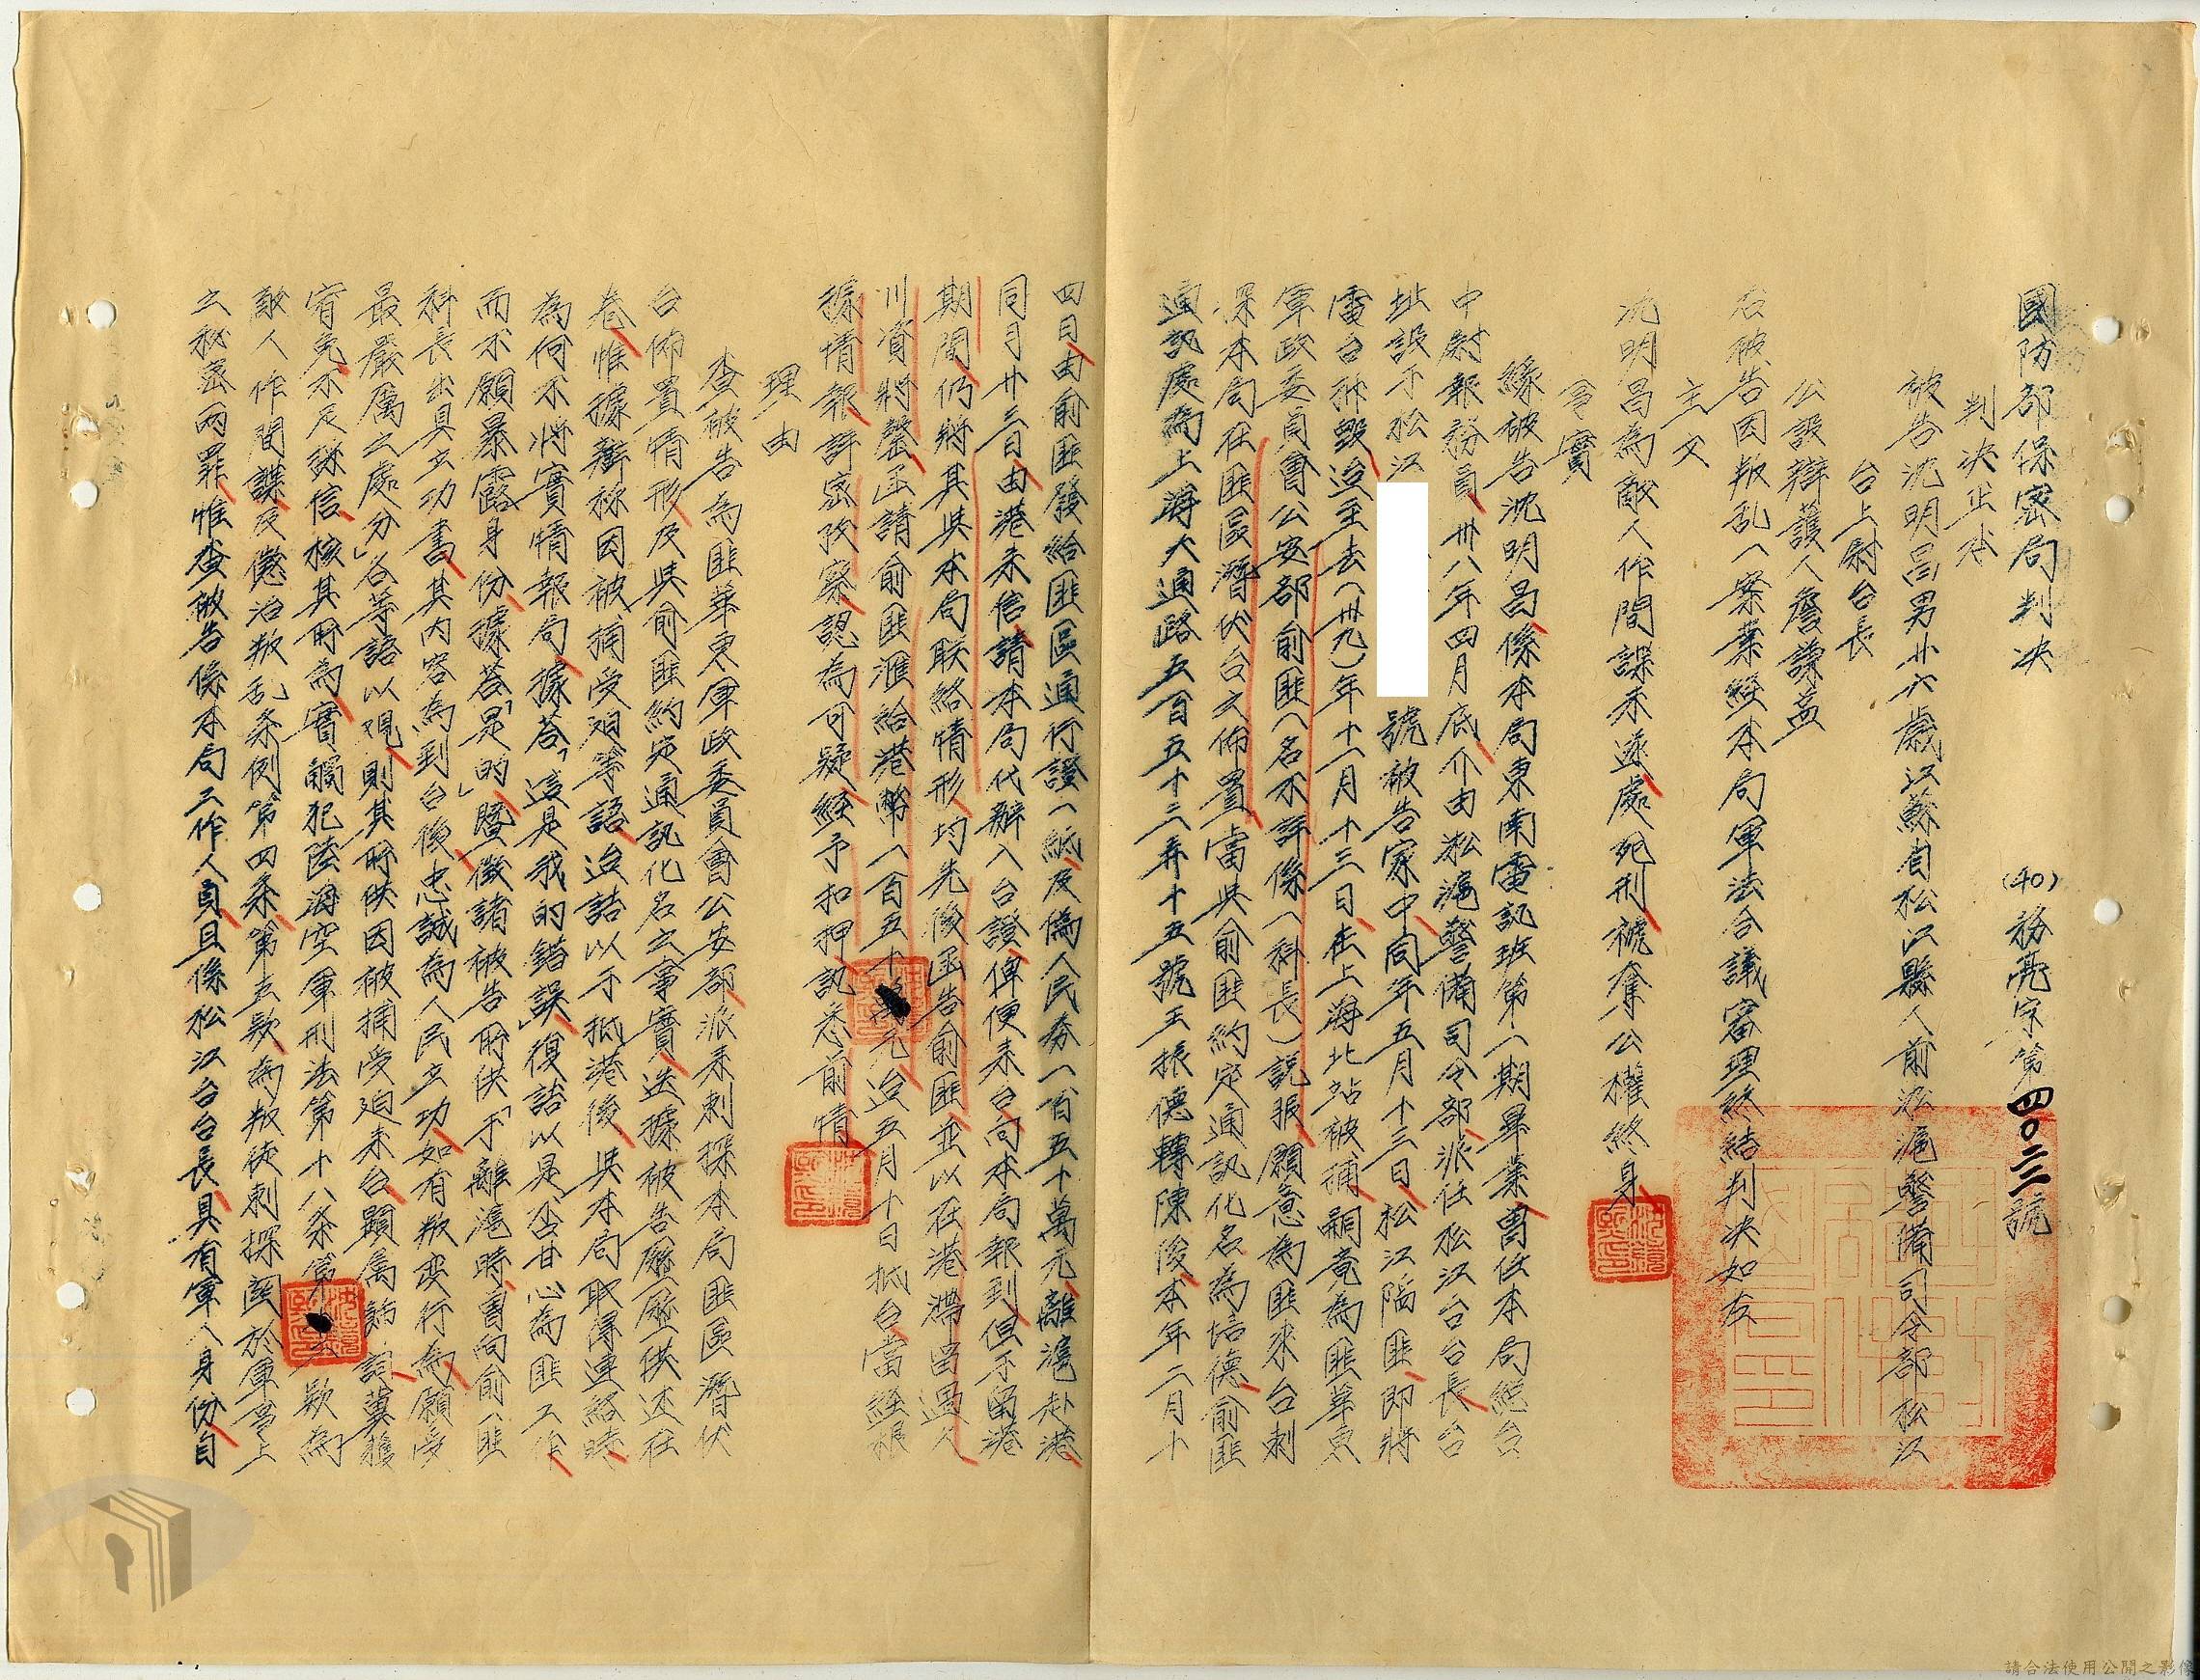 國防部保密局判決 (40)務亮字第四〇二二號
判決正本
被告沈明昌男廿六歲江蘇省松江縣人前淞滬警備司令部松江
台上尉台長
公設辯護人詹謙益
右被告因叛乱一案業經本局軍法合議審理終結判決如左
主文
沈明昌為敵人作間諜未遂處死刑褫奪公權終身
事實
緣被告沈明昌係本局東南電訊班第八期畢業曾任本局總台
中尉報務員卅八年四月底介由淞滬警備司令部派任松江台台長台
址設于松江 號被告家中同年五月十三日松江陷匪即將
電台拆毀迨至去(卅九)年十一月十三日在上海北站被捕嗣竟為匪華東
軍政委員會公安部俞匪(名不詳係(科長)說服願意為匪來台刺
探本局在匪區潛伏台之佈置當與俞匪約定通訊化名為培德俞匪
通訊處為上海大通路五百五十二弄十五號王振德轉陳俊本年二月十
四日由俞匪發給匪區通行證一紙及偽人民券一百五十萬元離滬赴港
同月廿三日由港來信請本局代辦入台證俾便來台向本局報到但于留港
期間仍將其與本局联絡情形均先後函告俞匪並以在港滯留過久
川資將罄函請俞匪滙給港幣一百五十元迨五月十日抵台當經根
據情報詳密攷察認為可疑經予扣押訊悉前情
理由
查被告為匪華東軍政委員會公安部派來刺探本局匪區潛伏
台佈置情形及與俞匪約定通訊化名之事實迭據被告歷歷供述在
卷惟據辯称因被捕受迫等語迨詰以于抵港後與本局取得連絡時
為何不將實情報局據答「這是我的錯誤」復詰以是否甘心為匪工作
而不願暴露身份據答「是的」暨徵諸被告所供「于離滬時曾向俞匪
科長出具立功書其內容為到台後忠誠為人民立功如有叛变行為願受
最嚴厲之處分」各等語以觀則其所供因被捕受迫來台顯屬飾詞冀獲
宥免不足諑信核其所為實觸犯陸海空軍刑法第十八条第一款為
敵人作間諜及懲治叛乱条例第四条第五款為叛徒刺探関於軍事上
之秘密兩罪惟查被告係本局工作人員且係松江台台長具有軍人身份自
請合法使用公開之影像